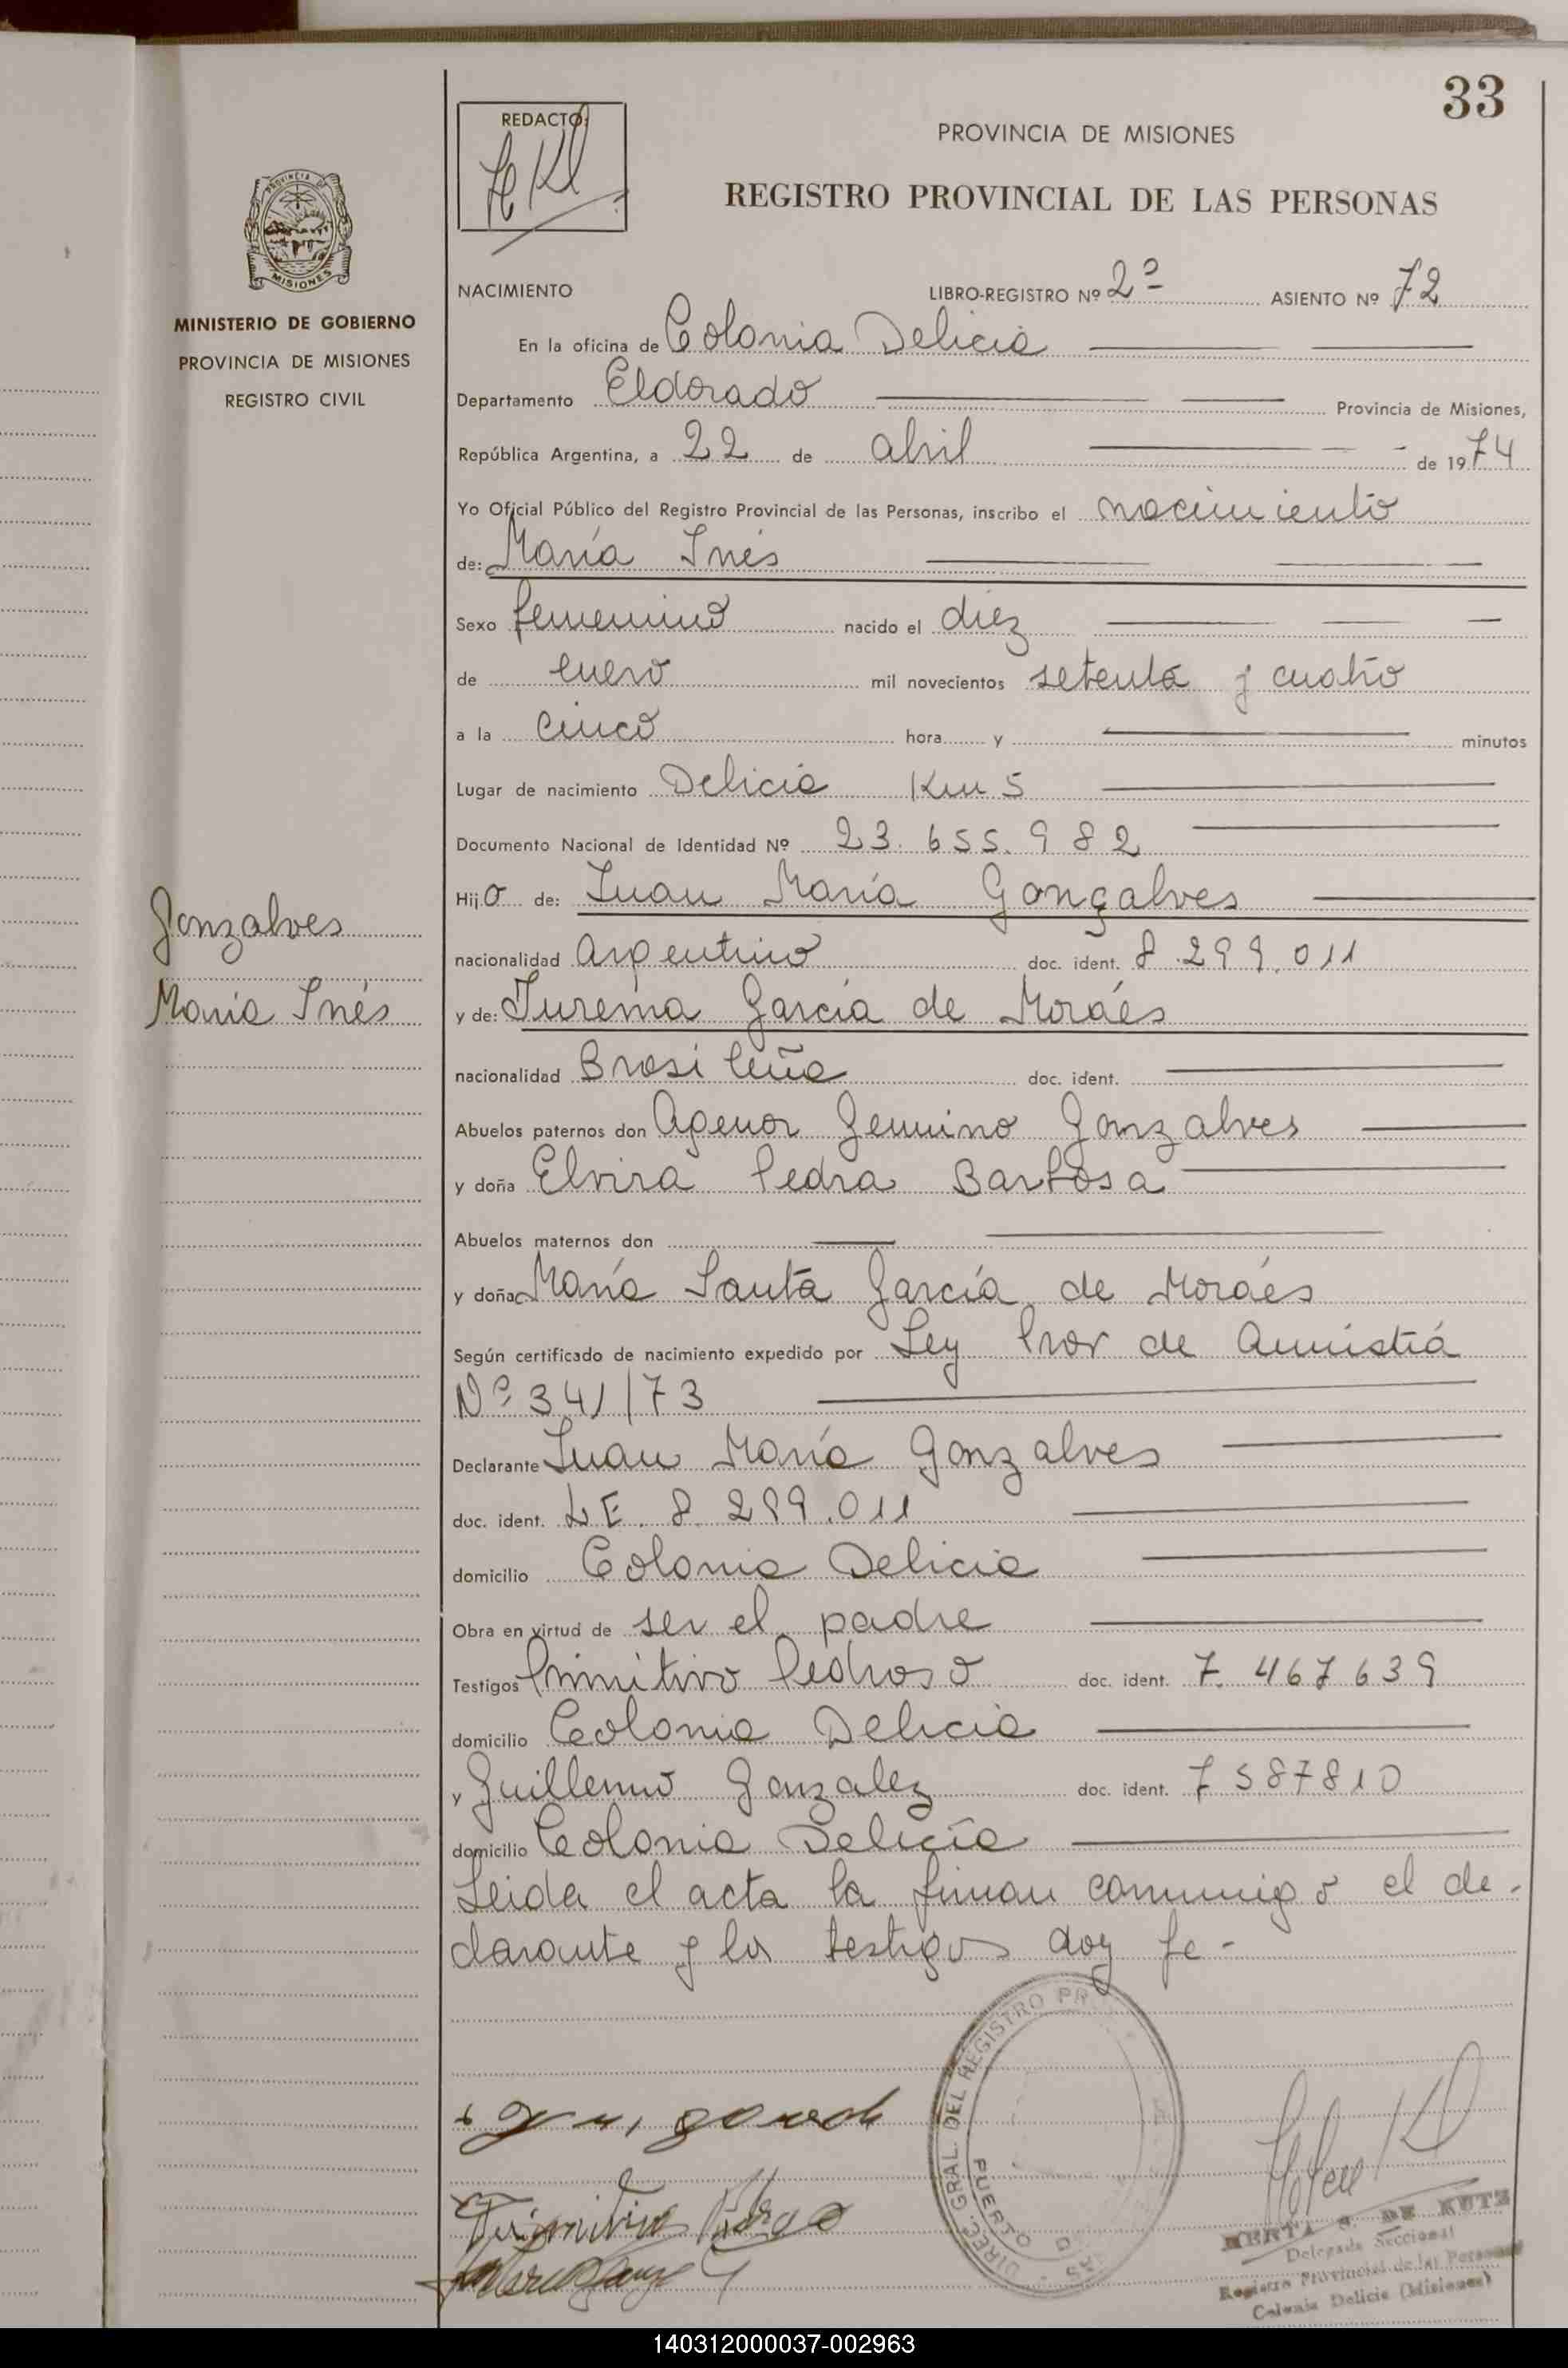 33
REDACTO:
PROVINCIA DE MISIONES
REGISTRO PROVINCIAL DE LAS PERSONAS
PROVINCIA DE
MISIONES
MINISTERIO DE GOBIERNO
PROVINCIA DE MISIONES
REGISTRO CIVIL
NACIMIENTO LIBRO-REGISTRO Nº 2º ASIENTO Nº 72
En la oficina de Colonia Delicia
Departamento Eldorado Provincia de Misiones,
República Argentina, a 22 de abril de 1974
Yo Oficial Público del Registro Provincial de las Personas, inscribo el nacimiento
de: María Inés
Sexo femenino nacido el diez
de enero mil novecientos setenta y cuatro
a la cinco hora y minutos
Lugar de nacimiento Delicia Km 5
Documento Nacional de Identidad Nº 23.655.982
Hijo de: Juan María Gonçalves
Gonzalves
María Inés
nacionalidad Argentino doc. ident. 8.299.011
y de: Jurema García de Moráes
nacionalidad Brasileña doc. ident.
Abuelos paternos don Agenor Gemino Gonzalves
y doña Elvira Pedra Barbosa
Abuelos maternos don
y doña María Santa García de Moráes
Según certificado de nacimiento expedido por Ley Prov de Amnistiá
Nº 341/73
Declarante Juan María Gonzalves
doc. ident. L.E. 8.299.011
domicilio Colonia Delicia
Obra en virtud de ser el padre
Testigos Primitivo Pedroso doc. ident. 7.467639
domicilio Colonia Delicia
y Guillermo Gonzalez doc. ident. 7587810
domicilio Colonia Delicia
Leida el acta la firman conmigo el de-
clarante y los testigos doy fe-
DIREC. GRAL. DEL REGISTRO
PUERTO
HERTA S. DE KUTZ
Delegada Seccional
Registro Provincial de las Personas
Colonia Delicia (Misiones)
140312000037-002963